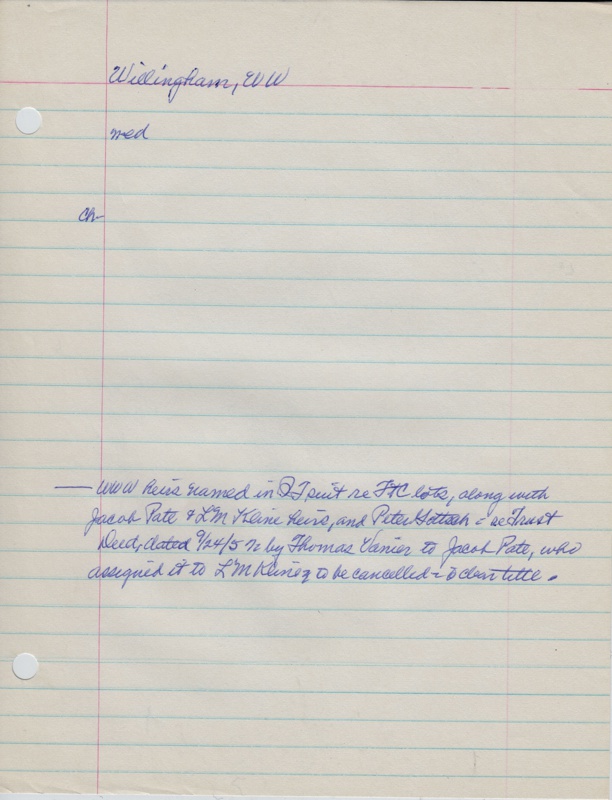 Willingham, WW
md
ch-
— WWW heirs named in QT suit re FTC lots, along with
Jacob Pate & LM Kline heirs, and Peter - re Trust
Deed, dated by Thomas Vanier to Jacob Pate, who
assigned it to LM Kline, to be cancelled - to clear title.